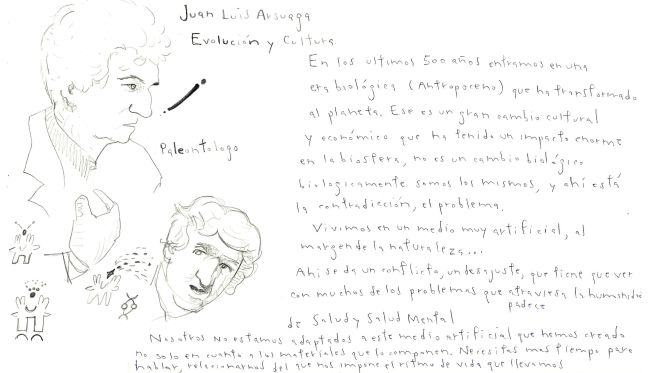 Juan Luis Arsuaga
Evolución y Cultura.
Paleontologo
En los ultimos 500 años entramos en una
era biológica (Antropoceno) que ha transformado
al planeta. Ese es un gran cambio cultural
y económico que ha tenido un impacto enorme
en la biosfera, no es un cambio biológico
biologicamente somos los mismos, y ahí está
la contradicción, el problema.
Vivimos en un medio muy artificial, al
margen de la naturaleza...
Ahi se da un conflicto, un desajuste, que tiene que ver
con muchos de los problemas que atraviesa la humanidad
padece
de Salud y Salud Mental
Nosotros no estamos adaptados a este medio artificial que hemos creado
no solo en cuanto a los materiales que lo componen. Necesitas mas tiempo para
hablar, relacionarnos del que nos impone el ritmo de vida que llevamos